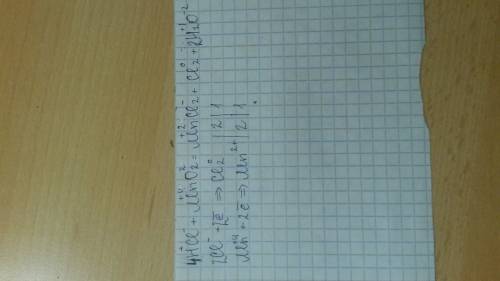 4H⁺Cl⁻ + Mn⁺⁴O₂⁻² = Mn⁺²Cl₂⁻ + Cl₂⁰ + 2H₂⁺¹O⁻²
2Cl⁻ + 2e̅ ⇒ Cl₂⁰ | 2 | 1
Mn⁺⁴ + 2e̅ ⇒ Mn²⁺ | 2 | 1 .